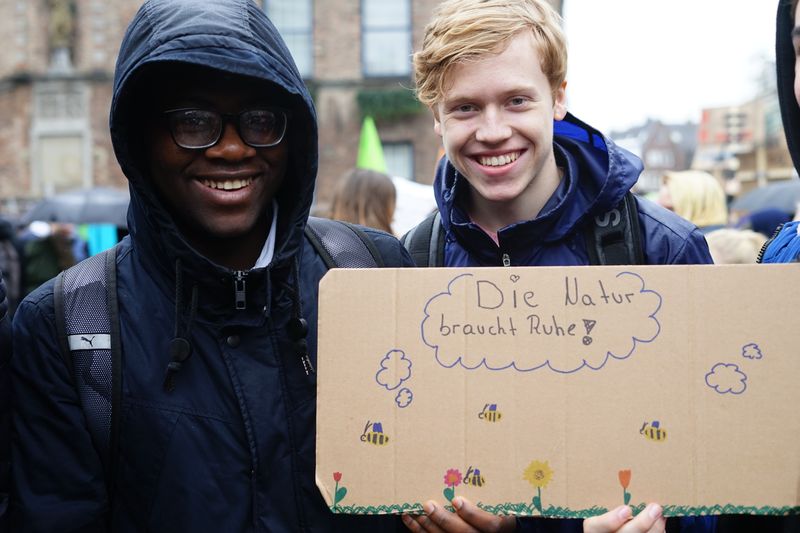 Die Natur
braucht Ruhe!
PUMA